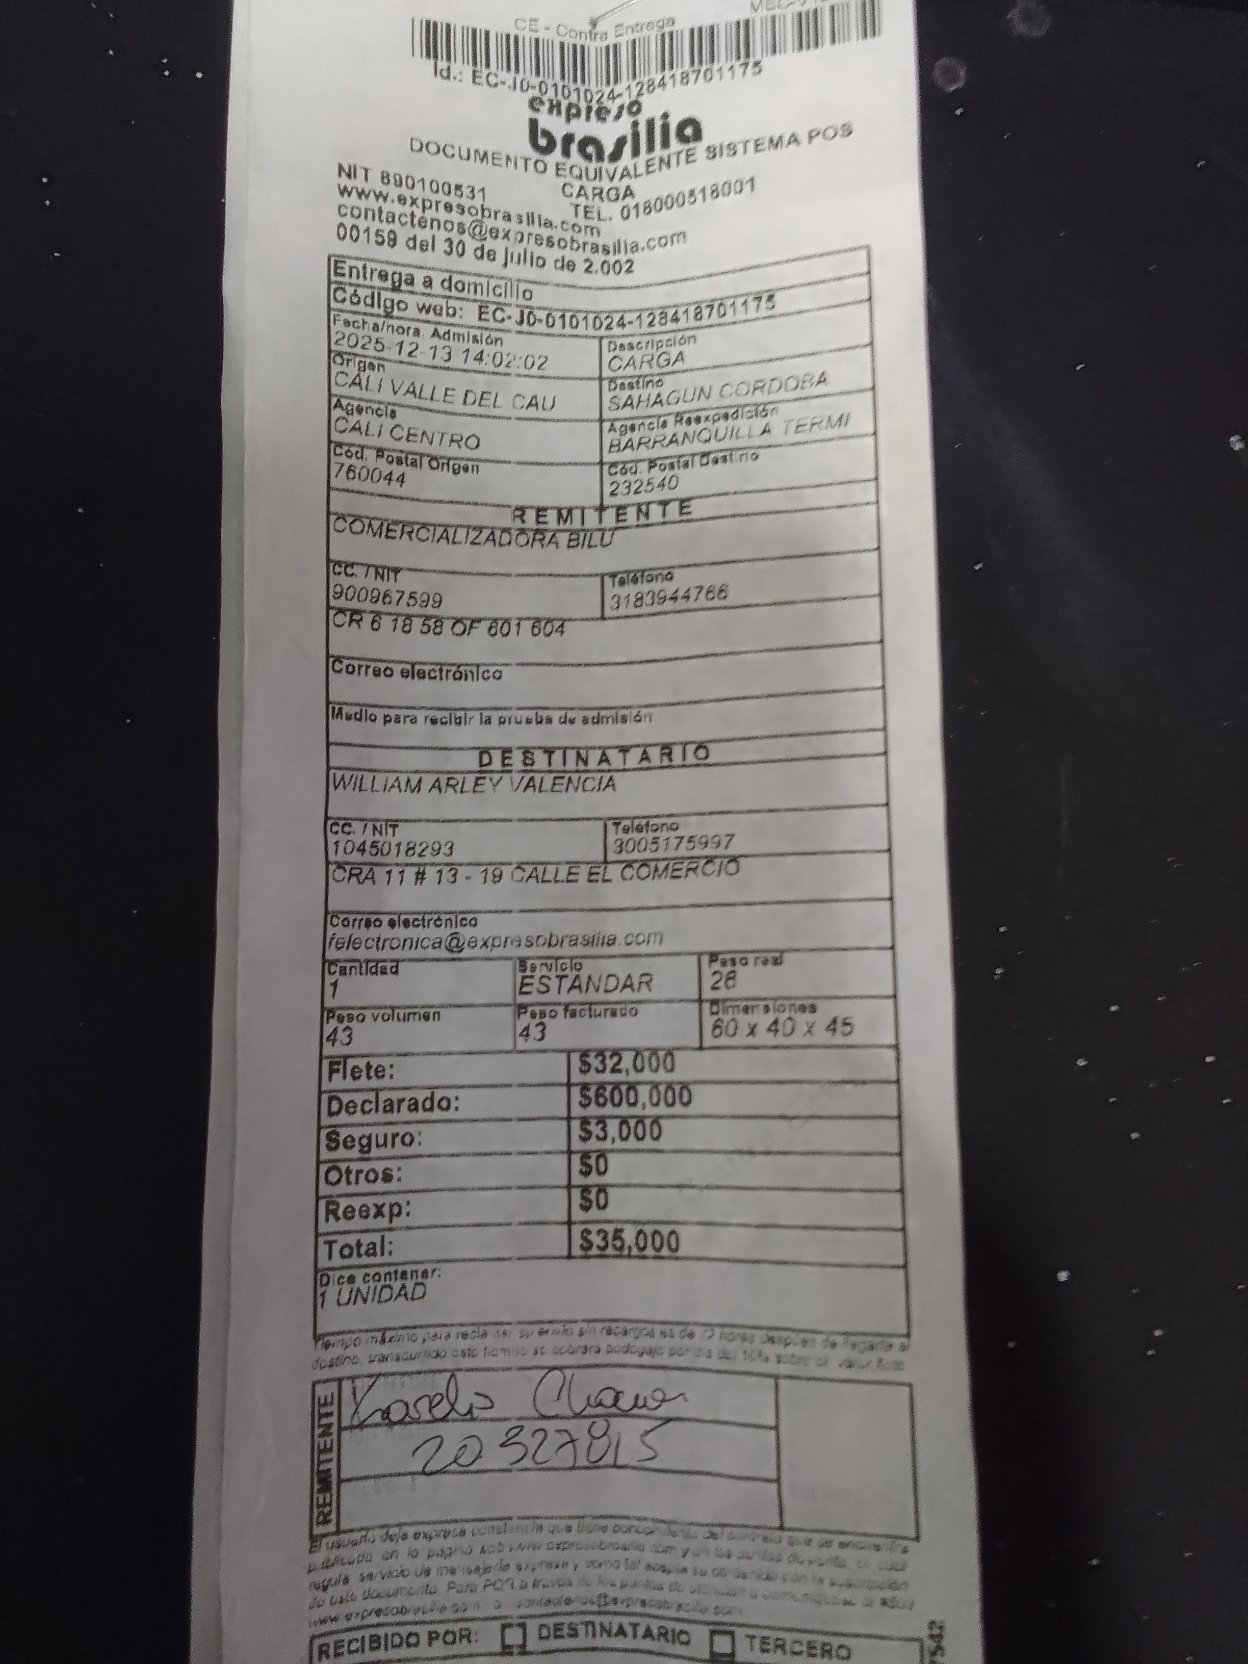 CE - Contra Entrega
Id.: EC-J0-0101024-128418701175
expreso
brasilia
DOCUMENTO EQUIVALENTE SISTEMA POS
CARGA
NIT 890100531 TEL. 018000518001
www.expresobrasilia.com
contactenos@expresobrasilia.com
00159 del 30 de julio de 2.002
Entrega a domicilio
Código web: EC-J0-0101024-128418701175
Fecha/hora. Admisión Descripción
2025-12-13 14:02:02 CARGA
Origen Destino
CALI VALLE DEL CAU SAHAGUN CORDOBA
Agencia Agencia Reexpedición
CALI CENTRO BARRANQUILLA TERMI
Cód. Postal Origen Cód. Postal Destino
760044 232540
REMITENTE
COMERCIALIZADORA BILU
CC. / NIT Teléfono
900967599 3183944766
CR 6 18 58 OF 601 604
Correo electrónico
Medio para recibir la prueba de admisión
DESTINATARIO
WILLIAM ARLEY VALENCIA
CC. / NIT Teléfono
1045018293 3005175997
CRA 11 # 13 - 19 CALLE EL COMERCIO
Correo electrónico
felectronica@expresobrasilia.com
Cantidad Servicio Peso real
1 ESTANDAR 28
Peso volumen Peso facturado Dimensiones
43 43 60 x 40 x 45
Flete: $32,000
Declarado: $600,000
Seguro: $3,000
Otros: $0
Reexp: $0
Total: $35,000
Dice contener:
1 UNIDAD
Tiempo máximo para reclamar su envío sin recargos es de horas después de llegada al
destino, transcurrido este tiempo se cobrará bodegaje por día del 10% sobre el valor flete
REMITENTE
20327815
El usuario deja expresa constancia que tiene conocimiento del contrato que se encuentra
publicado en la página web www.expresobrasilia.com y en los puntos de venta, el cual
regula servicio de mensajería expresa y como tal acepta su contenido con la suscripción
de este documento. Para PQR a través de los puntos de atención o comuníquese al
www.expresobrasilia.com o contactenos@expresobrasilia.com
RECIBIDO POR: DESTINATARIO TERCERO